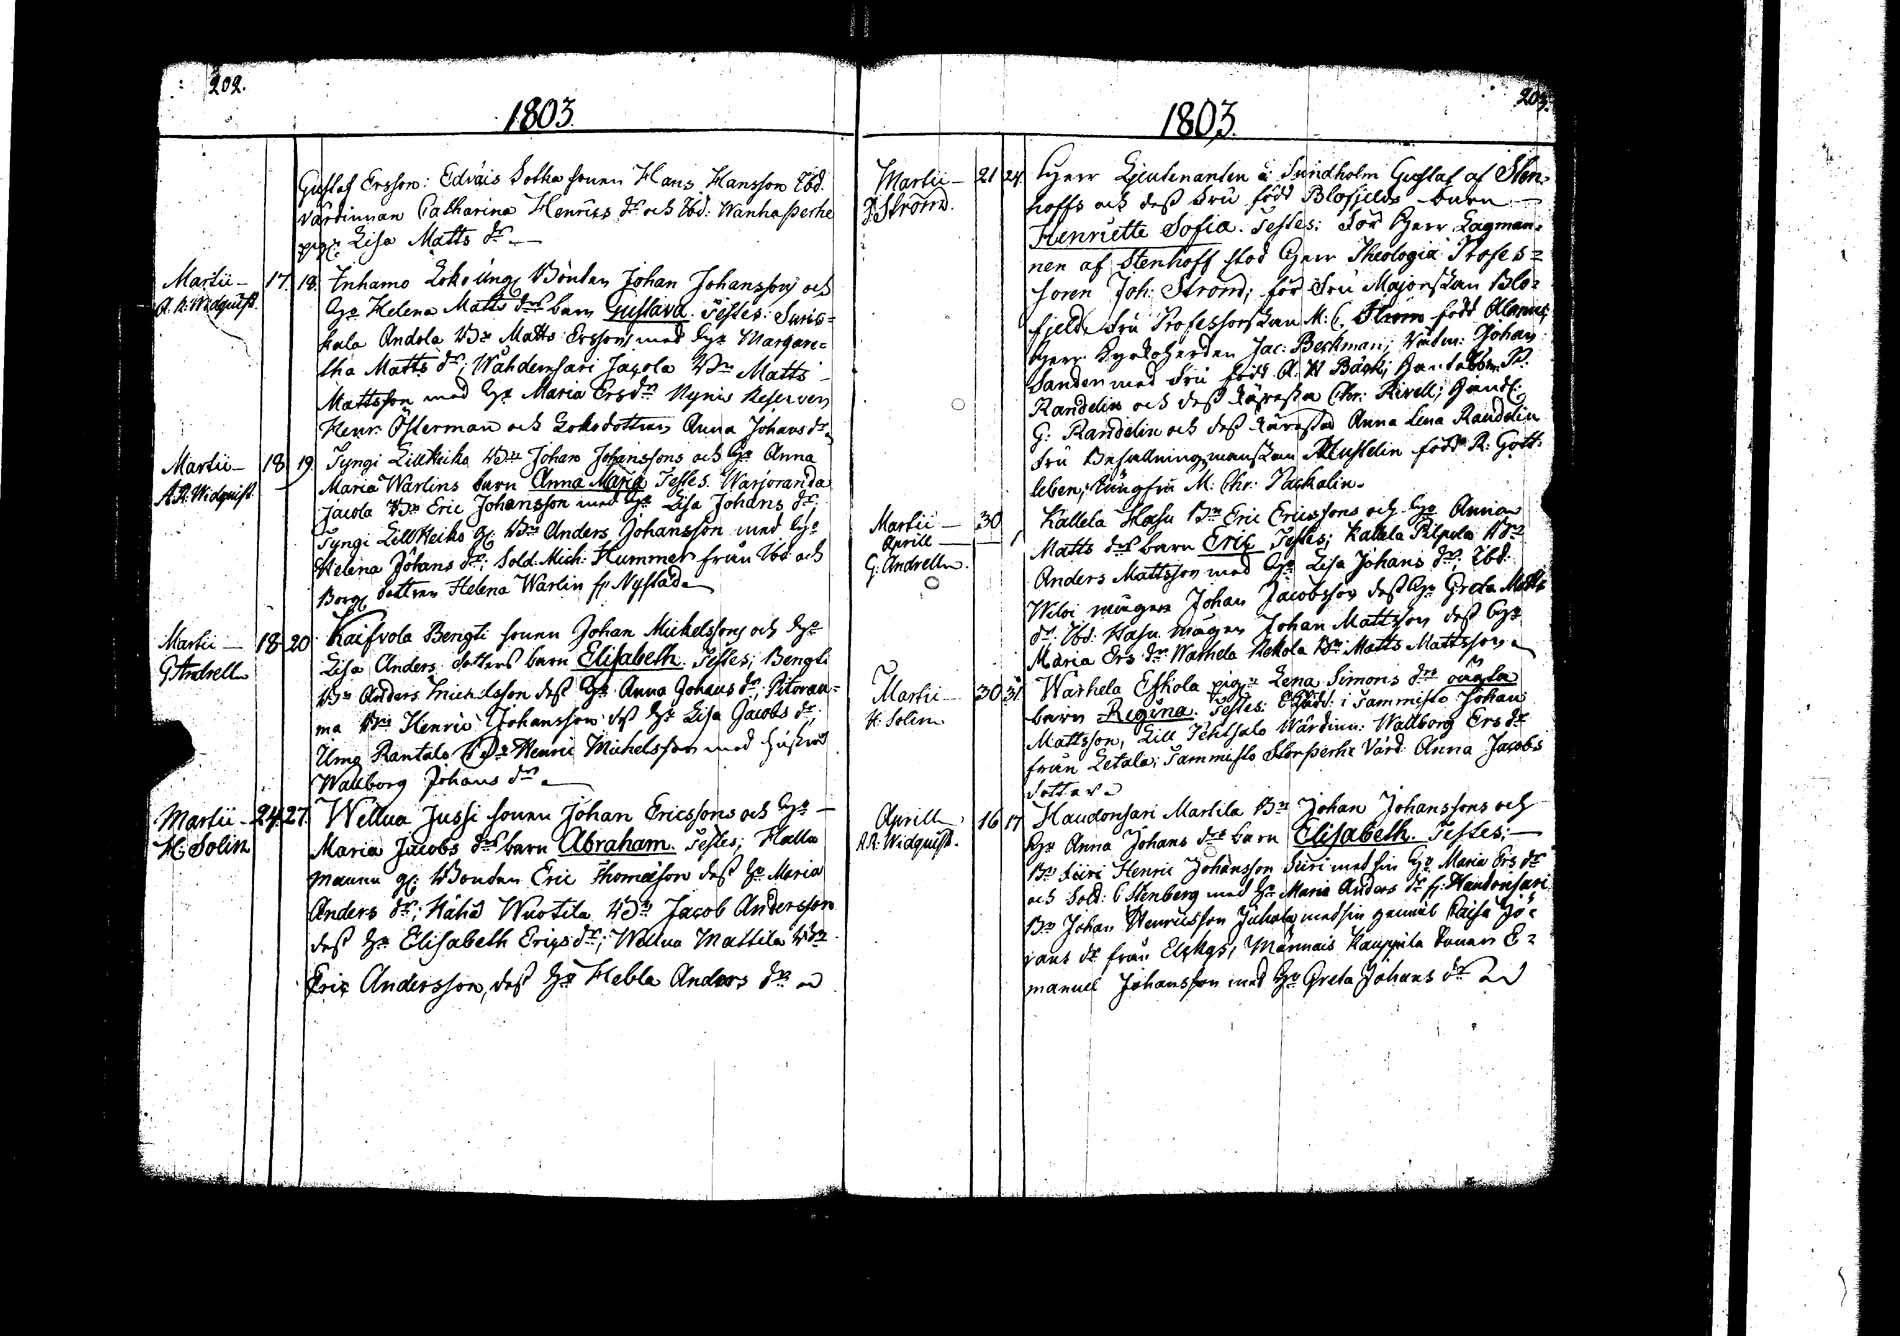 202.
1803.
Gustaf Ersson: Edväis Sotka sonen Hans Hansson Ibd.
värdinnan Catharina Henrics dr och Ibd: Wanhaperhe
pig: Lisa Matts dr
Martii 17. 18. Inhamo Loko ung Bonden Johan Johanssons och
A. R: Widquist. Hu Helena Matts drs barn Gustava. Testes: Suris=
kala Andola Bn Matts Ersson med Hu Margare=
tha Matts dr; Wähdensari Jacola Bn Matts
Mattsson med Hu Maria Ersdr Nynis Reserven
Henr: Österman och Lokodottren Anna Johansdr
Martii 18 19. Tyngi Lillheika Bn Johan Johanssons och Hu Anna
A.R: Widquist. Maria Warlins barn Anna Maria Testes. Warjoranda
Jacola Bn Eric Johansson med Hu Lisa Johans dr;
Tyngi Lillheika Bn Anders Johansson med Hu
Helena Johans dr; Sold: Mich: Hummer från Ibd och
Borg dottren Helena Warlin fr Nystad
Martii 18 20 Kaifvola Bengti sonen Johan Michelssons och Hu
G Andrell Lisa Anders dotters barn Elisabeth. Testes; Bengti
Bn Anders Michelsson dess Hu Anna Johans dr, Pitoran=
ma Bn Henric Johansson dess Hu Lisa Jacobs dr;
Rantalo Bn Henric Michelsson med hustru
Wallborg Johans dr
Martii 24. 27. Wellua Jussi sonen Johan Ericssons och Hu
H: Solin Maria Jacobs drs barn Abraham. Testes; Hallu
mannu Bonden Eric Thomasson dess Hu Maria
Anders dr; Häliä Wuotila Bn Jacob Andersson
dess Hu Elisabeth Ericsdr; Wellua Mattila Bn
Eric Andersson, dess Hu Hebla Anders dr
203.
1803.
Martii 21 24. Herr Lieutenanten å Sundholm Gustaf af Sten=
J Ström. hoffs och dess Fru född Blofjelds barn
Henriette Sofia. Testes: För Herr Lagman=
nen af Stenhoff stod Herr Theologiæ Profes=
soren Joh: Ström; för Fru Majorskan Blo=
fjeld Fru Professorskan M: C. Ström född Alanus;
Herr Kyrkoherden Jac: Beckman; Joham
Sanden med Fru född A. W Bäck;
Randelin och dess Käresta Chr: Kivell; Handl:
G: Randelin och dess Käresta Anna Lena Randelin
Fru Befallningsmanskan Musselin född R: Gott=
leben; Jungfru M: Chr: Packalin.
Martii 30 Kallela Hasu Bn Eric Ericssons och Hu Anna
Aprill 1 Matts drs barn Eric Testes; Kallela Pilpola Bn
G: Andrell. Anders Mattsson med Hu Lisa Johans dr; Ibd.
mågen Johan Jacobsson dess Hu Greta Matts
dr. Ibd. Hasu mågen Johan Mattsson dess Hu
Maria Ers dr Warhela Uckola Bn Matts Mattsson
Martii 30 31. Warhela Eskola pig: Lena Simons drs oägta
H: Solin barn Regina. Testes: i Tammisto Johan
Mattsson, Lill Tehtsalo Wärdinn: Wallborg Ers dr
från Letala; Tammisto Storperhe Värd: Anna Jacobs
dotter
Aprill 16 17 Haudonsari Martila Bn Johan Johanssons och
A.R: Widquist. Hu Anna Johans drs barn Elisabeth. Testes:
Bn Suri Henric Johansson Suri med sin Hu Maria Ers dr
och Sold: C Stenberg med Hu Maria Anders dr fr: Haudonsari
Bn Johan Henricsson Juhola med sin gemål Caisa Jo=
hans dr från Elfkys; Männäis Kauppila sonen E=
manuel Johansson med Hu Greta Johans dr